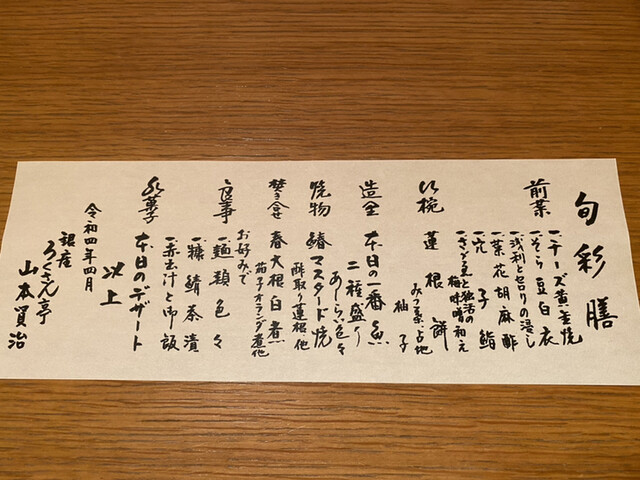 旬彩膳
前菜
一、チーズ黄金焼
一、そら豆白衣
一、浅利と芹の浸し
一、菜花胡麻酢
一、穴子鮨
一、さざえと独活の
梅味噌和え
吸椀
蓮根餅
みつ葉
柚子
造里
本日の一番魚
二種盛り
あしらい色々
焼物
鰆マスタード焼
酢取り蓮根、他
焚き合せ
春大根白煮
茄子オランダ煮他
食事
お好みで
一、麺類色々
一、糠鯖茶漬
一、赤出汁と御飯
水菓子
本日のデザート
以上
令和四年四月
銀座
ろくさん亭
山本賢治